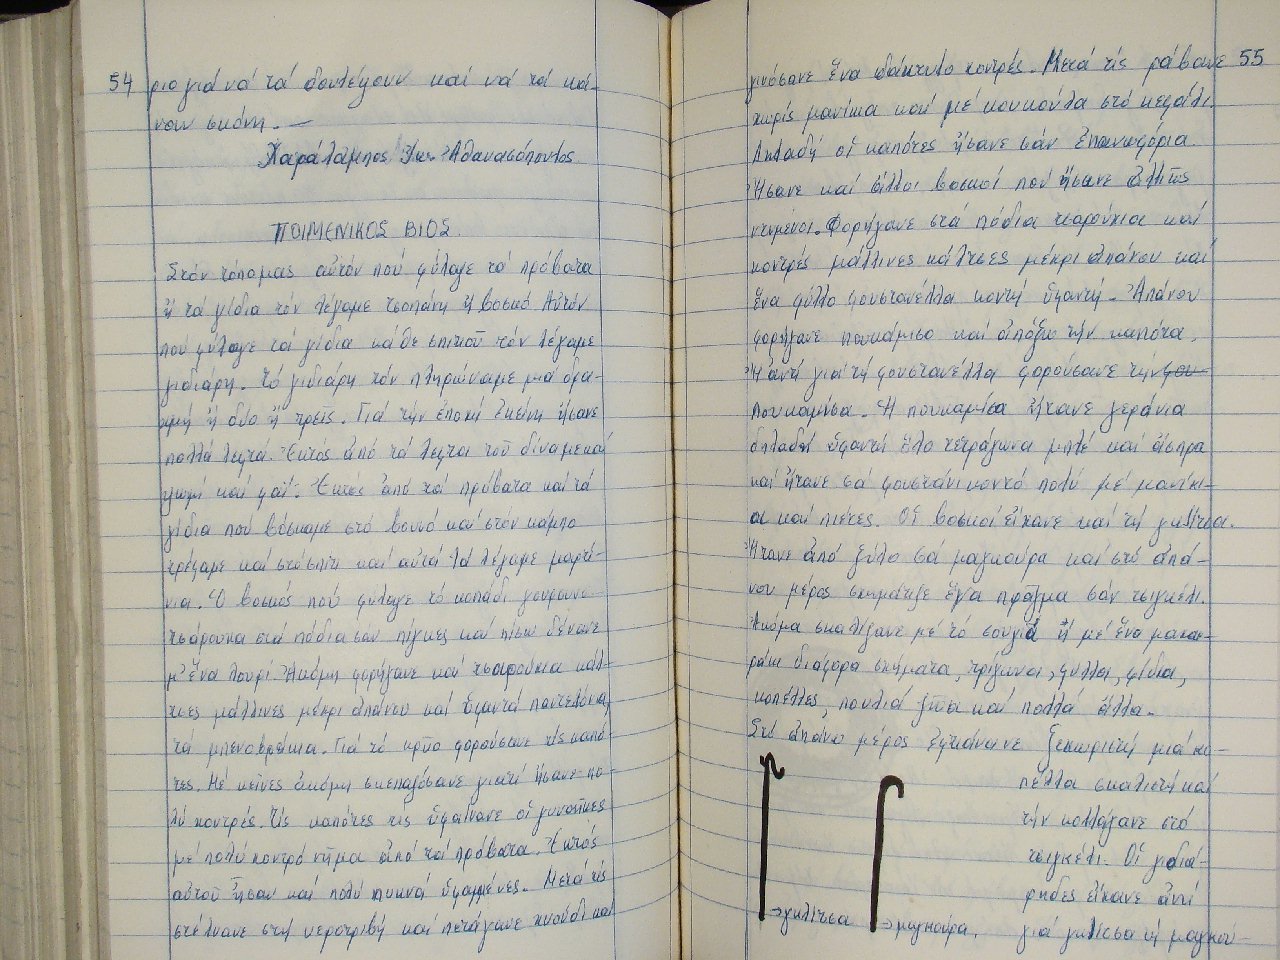 54
ριο γιά νά τά δουλέψουν καί νά τά κά-
νουν σκόνη. —
Χαράλαμπος Ἀθανασόπουλος
ΠΟΙΜΕΝΙΚΟΣ ΒΙΟΣ.
Στόν τόπο μας αὐτόν πού φύλαγε τά πρόβατα
ἤ τά γίδια τόν λέγαμε τσοπάνη ἤ βοσκό. Αὐτόν
πού φύλαγε τά γίδια κάθε σπιτιοῦ τόν λέγαμε
γιδιάρη. Τό γιδιάρη τόν πληρώναμε μιά δρα-
χμή ἤ δύο ἤ τρεῖς. Γιά τήν ἐποχή ἐκείνη ἤσανε
πολλά λεφτά. Ἐκτός ἀπό τά λεφτά τοῦ δίναμε καί
ψωμί καί φαΐ. Ἐκτος ἀπό τά πρόβατα καί τά
γίδια πού βόσκαμε στό βουνό καί στόν κάμπο
τρέφαμε καί στό σπίτι καί αὐτά τά λέγαμε μαρτί-
νια. Ὁ βοσκός πού φύλαγε τό κοπάδι γουρουνο-
τσάρουχα στά πόδια σάν πίγκες καί πίσω δένανε
μ' ἕνα λουρί. Ἀκόμη φορήγανε καί τσαρούχια κάλ-
τσες μάλλινες μέχρι ἀπάνου καί ὑφαντά παντελόνια,
τά μπενοβράκια. Γιά τό κρῦο φορούσανε τίς καπό-
τες. Μέ κεῖνες ἀκόμη σκεπαζόσανε γιατί ἤσανε πο-
λύ χοντρές. Τίς καπότες τις ὑφαίνανε οἱ γυναῖκες
μέ πολύ χοντρό νῆμα ἀπό τά πρόβατα. Ἐκτός
αὐτοῦ ἦσαν καί πολύ πυκνά ὑφαμένες. Μετά τίς
στέλνανε στή νεροτριβή καί πετάγανε χνούδι καί
55
γινόσανε ἕνα δάκτυλο χοντρές. Μετά τίς ράβανε
χωρίς μανίκια καί μέ κουκούλα στό κεφάλι.
Δηλαδή οἱ καπότες ἤσανε σάν ἐπανωφόρια.
Ἤσανε καί ἄλλοι βοσκοί πού ἤσανε ἀλλιῶς
ντυμένοι. Φορήγανε στά πόδια τσαρούχια καί
χοντρές μάλλινες κάλτσες μέχρι ἀπάνου καί
ἕνα φύλλο φουστανέλλα κοντή ὑφαντή. Ἀπάνου
φορήγανε πουκάμισο καί ἀπόξω τήν καπότα.
Ἤ ἀντί γιά τή φουστανέλλα φορούσανε τήν φου-
πουκαμίσα. Ἡ πουκαμίσα ἤτανε γεράνια
δηλαδή ὑφαντή ὅλο τετράγωνα μπλέ καί ἄσπρα
καί ἤτανε σά φουστάνι κοντό πολύ μέ μανίκι-
α καί πιέτες. Οἱ βοσκοί εἴχανε καί τή γκλίτσα.
Ἤτανε ἀπό ξύλο σά μαγκούρα καί στό ἀπά-
νου μέρος σχημάτιζε ἕνα πρᾶγμα σάν τσιγκέλι.
Ἀκόμα σκαλίζανε μέ τό σουγιά ἤ μέ ἕνα μαχαι-
ράκι διάφορα σχήματα, τρίγωνα, φύλλα, φίδια,
κοπέλλες, πουλιά ζῶα καί πολλά ἄλλα.
Στό ἀπάνω μέρος ἐφτιάνανε ξεχωριστή μιά κο-
πέλλα σκαλιστή καί
τήν κολλάγανε στό
τσιγκέλι. Οἱ γιδιά-
ρηδες εἴχανε ἀντί
→ γκλίτσα
→ μαγκούρα.
γιά γκλίτσα τή μαγκού-